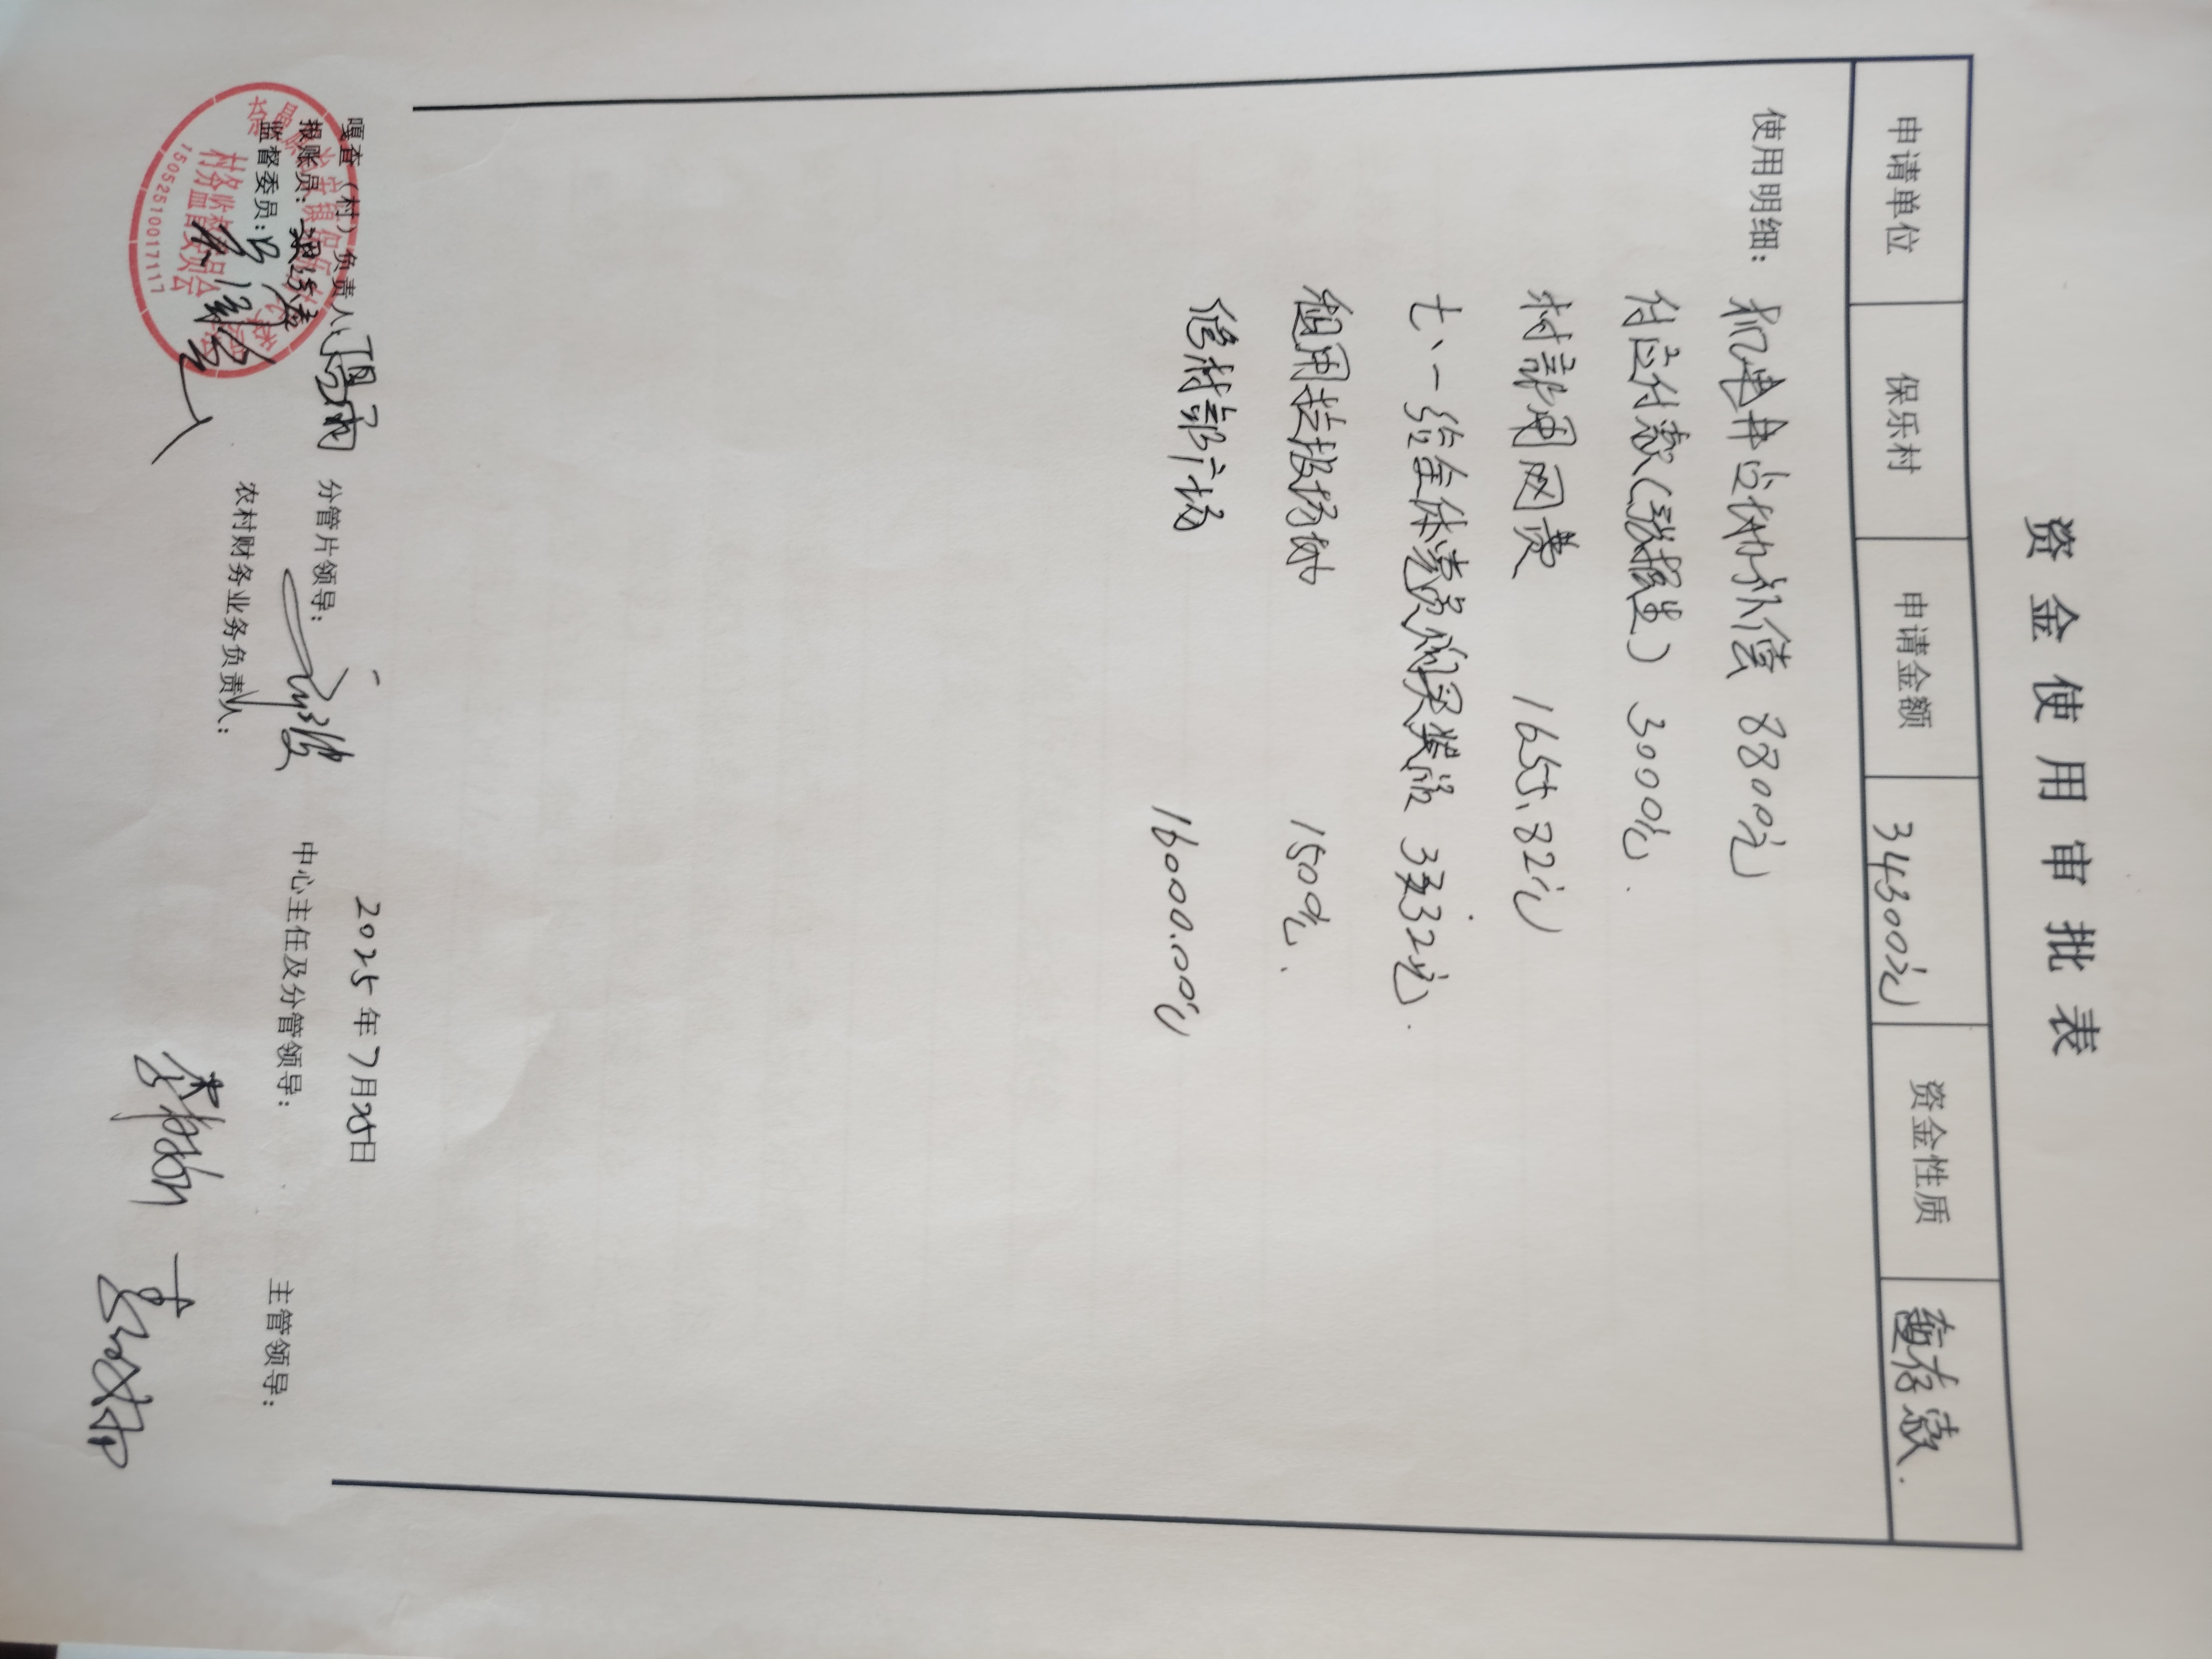 资金使用审批表
申请单位 保乐村 申请金额 34300元 资金性质 暂存款.
使用明细： 机电井占地补偿 8800元
付应付款(张振生) 3000元.
村部用网费 1655.82元
七、一给全体党员购买奖品 3332元.
租用垃圾场地 1500元.
修村部广场 16000.00元
2025年7月25日
嘎查（村）负责人：
报账员：
监督委员：
分管片领导：
农村财务业务负责人：
中心主任及分管领导：
主管领导：
村务监督委员会
15052510017117